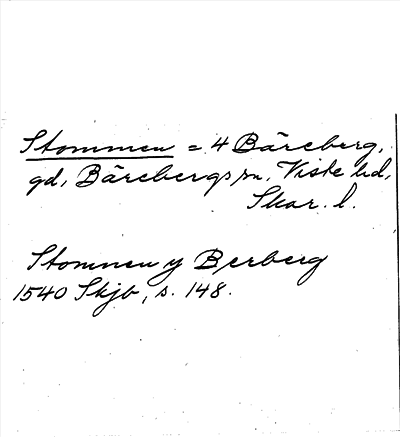 Stommen = 4 Bäreberg,
gd, Bärebergs sn, Viste hd,
Skar. l.
Stomnen y Berberg
1540 Skjb, s. 148.